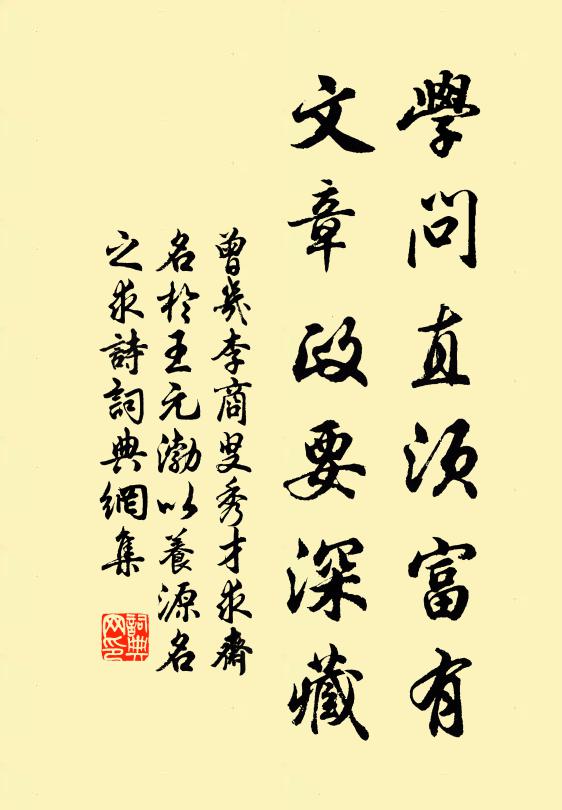 學問直須富有
文章政要深藏
曾幾李商叟秀才求齋
名於王元渤以養源名
之求詩詞典網集
詞典網印